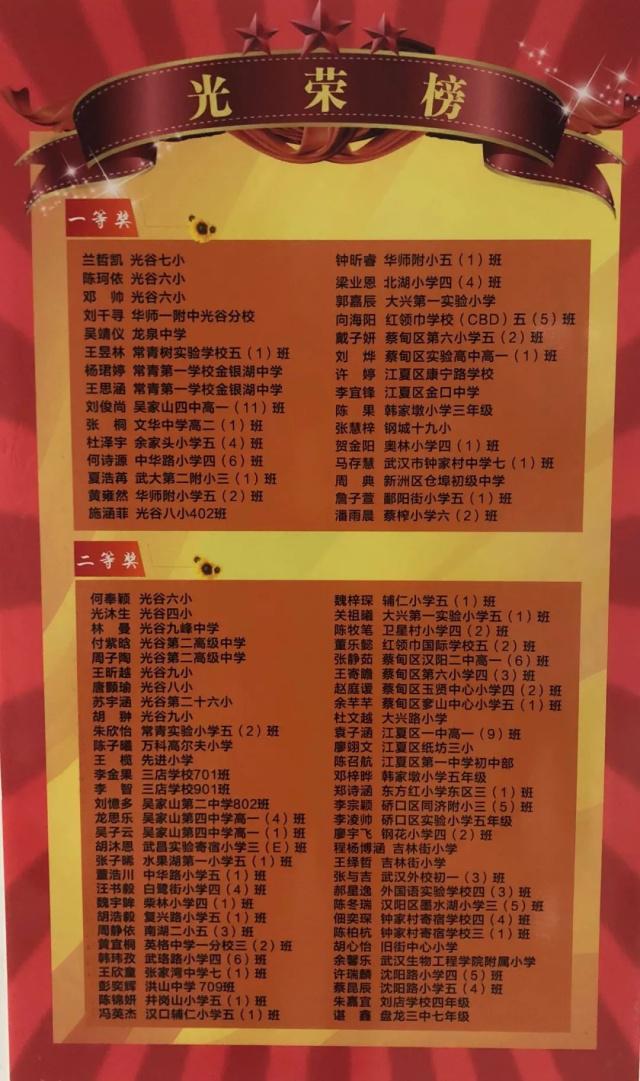 光荣榜
一等奖
兰哲凯 光谷七小
陈珂依 光谷六小
邓 帅 光谷六小
刘千寻 华师一附中光谷分校
吴靖仪 龙泉中学
王昱林 常青树实验学校五（1）班
杨珺婷 常青第一学校金银湖中学
王思涵 常青第一学校金银湖中学
刘俊尚 吴家山四中高一（11）班
张 桐 文华中学高二（1）班
杜泽宇 余家头小学五（4）班
何诗源 中华路小学四（6）班
夏浩苒 武大第二附小三（1）班
黄雍然 华师附小学五（2）班
施涵菲 光谷八小402班
钟昕睿 华师附小五（1）班
梁业恩 北湖小学四（4）班
郭嘉辰 大兴第一实验小学
向海阳 红领巾学校（CBD）五（5）班
戴子妍 蔡甸区第六小学五（2）班
刘 烨 蔡甸区实验高中高一（1）班
许 婷 江夏区康宁路学校
李宜锋 江夏区金口中学
陈 果 韩家墩小学三年级
张慧梓 钢城十九小
贺金阳 奥林小学四（1）班
马存慧 武汉市钟家村中学七（1）班
周 典 新洲区仓埠初级中学
詹子萱 鄱阳街小学五（1）班
潘雨晨 蔡榨小学六（2）班
二等奖
何奉颖 光谷六小
光沐生 光谷四小
林 曼 光谷九峰中学
付紫晗 光谷第二高级中学
周子陶 光谷第二高级中学
王昕越 光谷九小
唐颢瑜 光谷八小
苏宇涵 光谷第二十六小
胡 翀 光谷九小
朱欣怡 常青实验小学五（2）班
陈子曦 万科高尔夫小学
王 榄 先进小学
李金果 三店学校701班
李 智 三店学校901班
刘憶多 吴家山第二中学802班
龙思乐 吴家山第四中学高一（4）班
吴子云 吴家山第四中学高一（1）班
胡沐恩 武昌实验寄宿小学三（E）班
张子晞 水果湖第一小学五（1）班
董浩川 中华路小学五（1）班
汪书毅 白鹭街小学四（4）班
魏宇眸 柴林小学四（1）班
胡浩毅 复兴路小学五（1）班
周静依 南湖二小五（3）班
黄宜桐 英格中学一分校三（2）班
韩玮孜 武珞路小学四（6）班
王欣童 张家湾中学七（1）班
彭奕辉 洪山中学 709班
陈锦妍 井岗山小学五（1）班
冯英杰 汉口辅仁小学五（1）班
魏梓琛 辅仁小学五（1）班
关祖曦 大兴第一实验小学五（1）班
陈牧笔 卫星村小学四（2）班
董乐懿 红领巾国际学校五（2）班
张静茹 蔡甸区汉阳二中高一（6）班
王寄瞻 蔡甸区第六小学四（3）班
赵庭谖 蔡甸区玉贤中心小学四（2）班
余芊芊 蔡甸区奓山中心小学五（1）班
杜文越 大兴路小学
袁子涵 江夏区一中高一（9）班
廖翊文 江夏区纸坊三小
陈召航 江夏区第一中学初中部
邓梓晔 韩家墩小学五年级
郑诗涵 东方红小学东区三（1）班
李宗颖 硚口区同济附小三（5）班
李凌帅 硚口区实验小学五年级
廖宇飞 钢花小学四（2）班
程杨博涵 吉林街小学
王绎哲 吉林街小学
张与吉 武汉外校初一（3）班
郝星逸 外国语实验学校四（3）班
陈冬瑞 汉阳区墨水湖小学三（5）班
佃奕琛 钟家村寄宿学校四（4）班
陈柏杭 钟家村寄宿学校三（1）班
胡心怡 旧街中心小学
余馨乐 武汉生物工程学院附属小学
许瑞麟 沈阳路小学四（5）班
蔡昆辰 沈阳路小学五（4）班
朱嘉宜 刘店学校四年级
谌 鑫 盘龙三中七年级